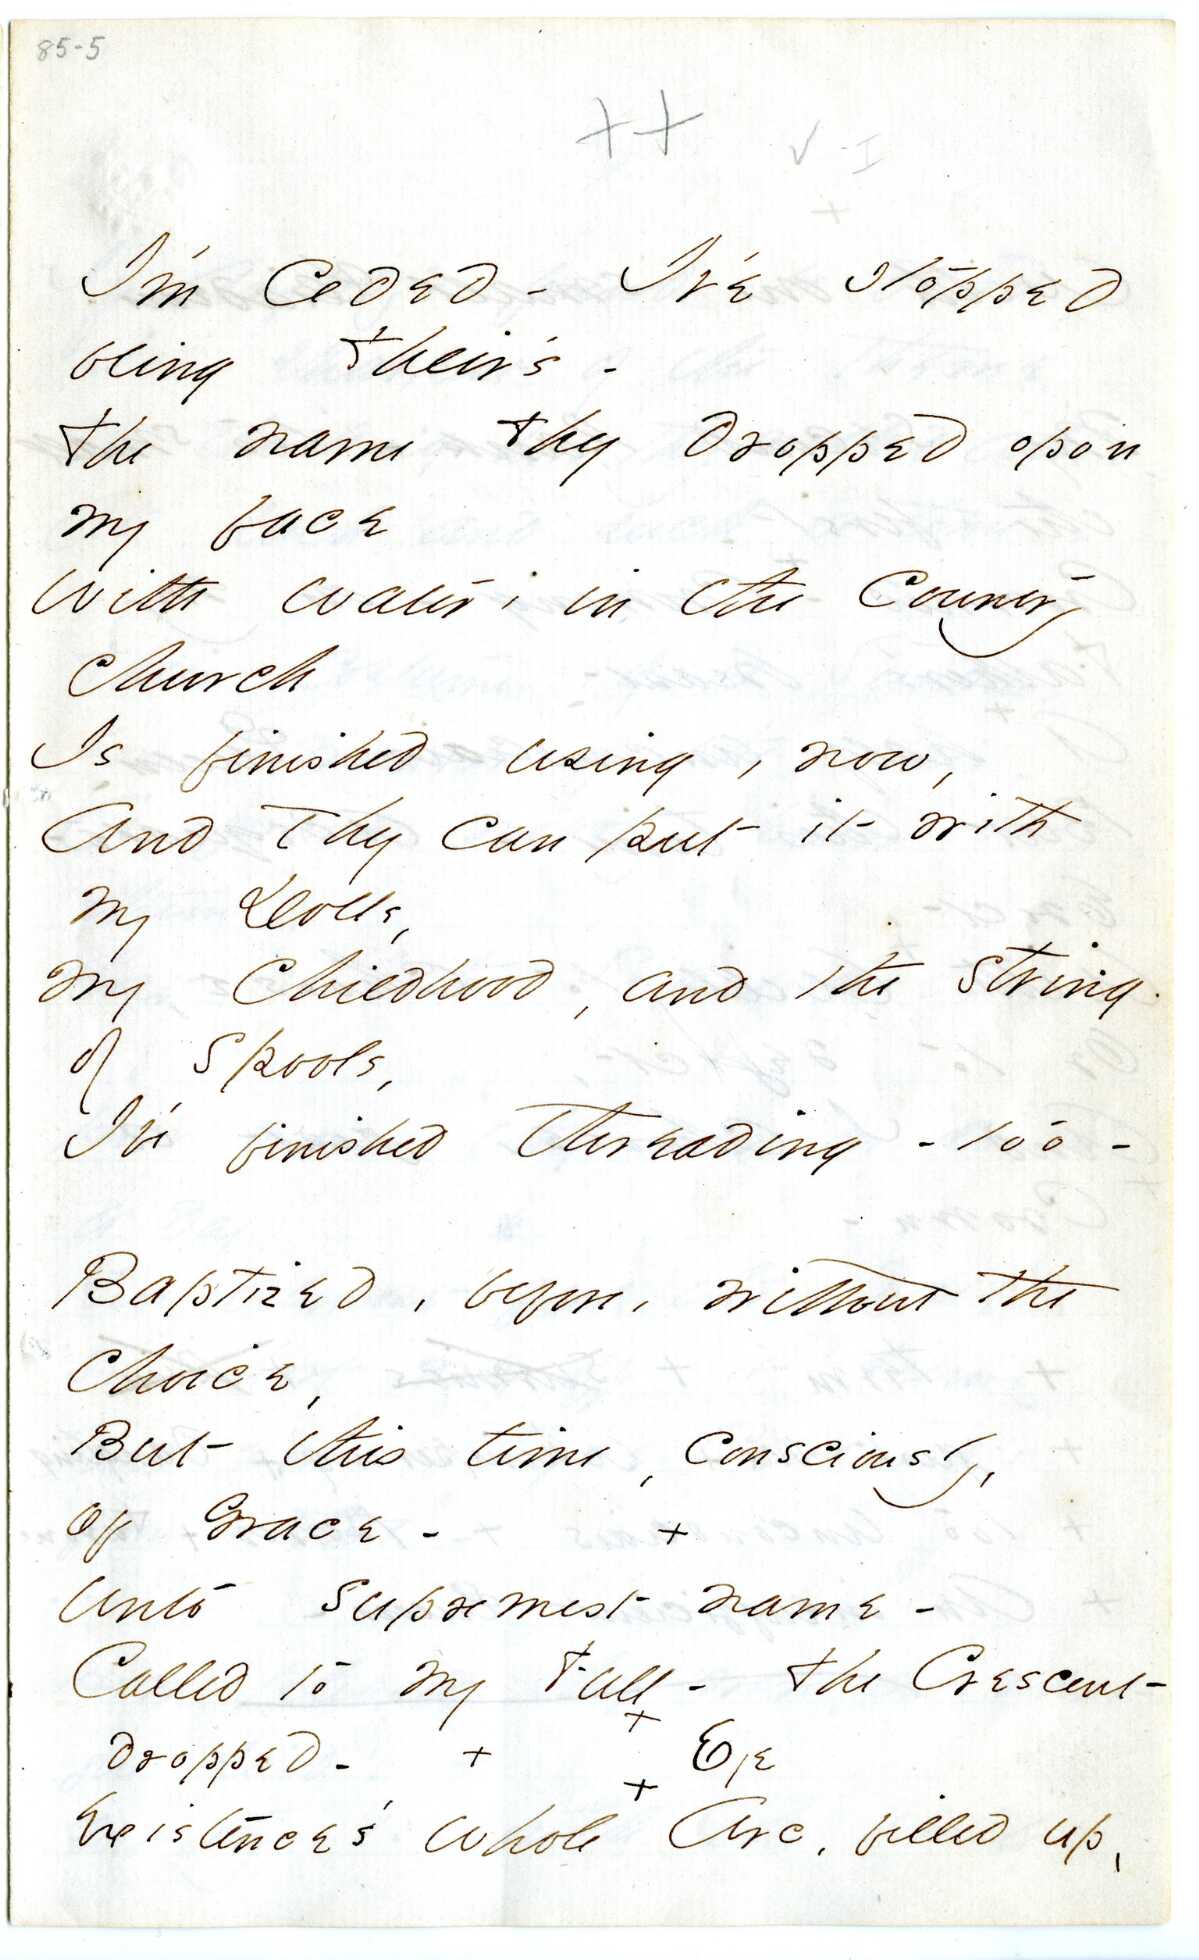 85-5
++ √ I
+
I'm Ceded - I've stopped
being Their's -
The name They dropped opon
my face
With water, in the Country
Church
Is finished using, now,
And They can put it with
my Dolls,
My Childhood, and the String
of Spools,
I've finished threading - too -
Baptized, before, without the
Choice,
But this time, Consciously,
Of Grace - +
Unto Supremest name -
Called to my Full - The Crescent
dropped -
+ + Eye
+
Existence's whole Arc, filled up,